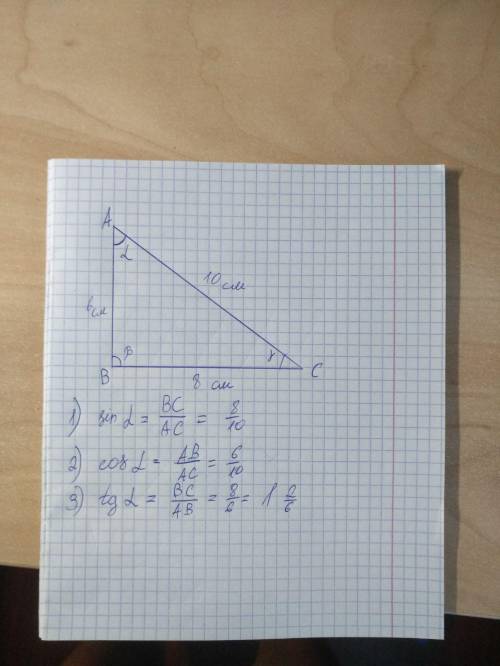 A
α
10 см
6 см
β
γ
B
C
8 см
1) sin α = BC/AC = 8/10
2) cos α = AB/AC = 6/10
3) tg α = BC/AB = 8/6 = 1 2/6